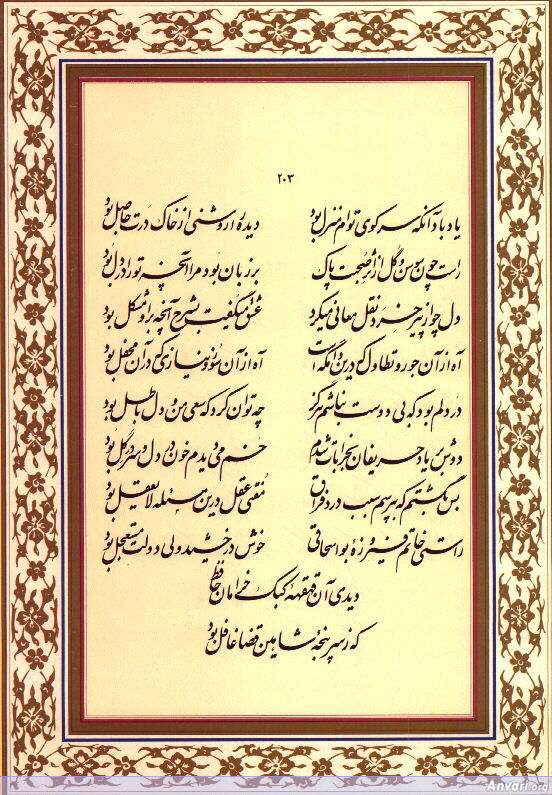 ۲۰۳
یاد باد آنکه سر کوی توام منزل بود دیده را روشنی از خاک درت حاصل بود
راست چون سوسن و گل از اثر صحبت پاک بر زبان بود مرا آنچه تو را در دل بود
دل چو از پیر خرد نقل معانی میکرد عشق میگفت بشرح آنچه بر او مشکل بود
آه از آن جور و تطاول که درین دامگه است آه از آن سوز و نیازی که در آن محفل بود
در دلم بود که بی دوست نباشم هرگز چه توان کرد که سعی من و دل باطل بود
دوش بر یاد حریفان بخرابات شدم خم می دیدم خون در دل و سر در گل بود
بس بگشتم که بپرسم سبب درد فراق مفتی عقل درین مسئله لایعقل بود
راستی خاتم فیروزه بو اسحاقی خوش درخشید ولی دولت مستعجل بود
دیدی آن قهقهه کبک خرامان حافظ
که ز سرپنجه شاهین قضا غافل بود
Anvari.org